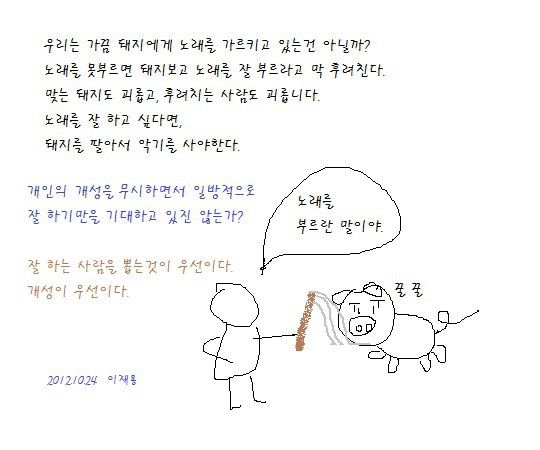 우리는 가끔 돼지에게 노래를 가르키고 있는건 아닐까?
노래를 못부르면 돼지보고 노래를 잘 부르라고 막 후려친다.
맞는 돼지도 괴롭고, 후려치는 사람도 괴롭니다.
노래를 잘 하고 싶다면,
돼지를 팔아서 악기를 사야한다.
개인의 개성을 무시하면서 일방적으로
잘 하기만을 기대하고 있진 않는가?
노래를
부르란 말이야.
잘 하는 사람을 뽑는것이 우선이다.
개성이 우선이다.
꿀 꿀
20121024 이재용